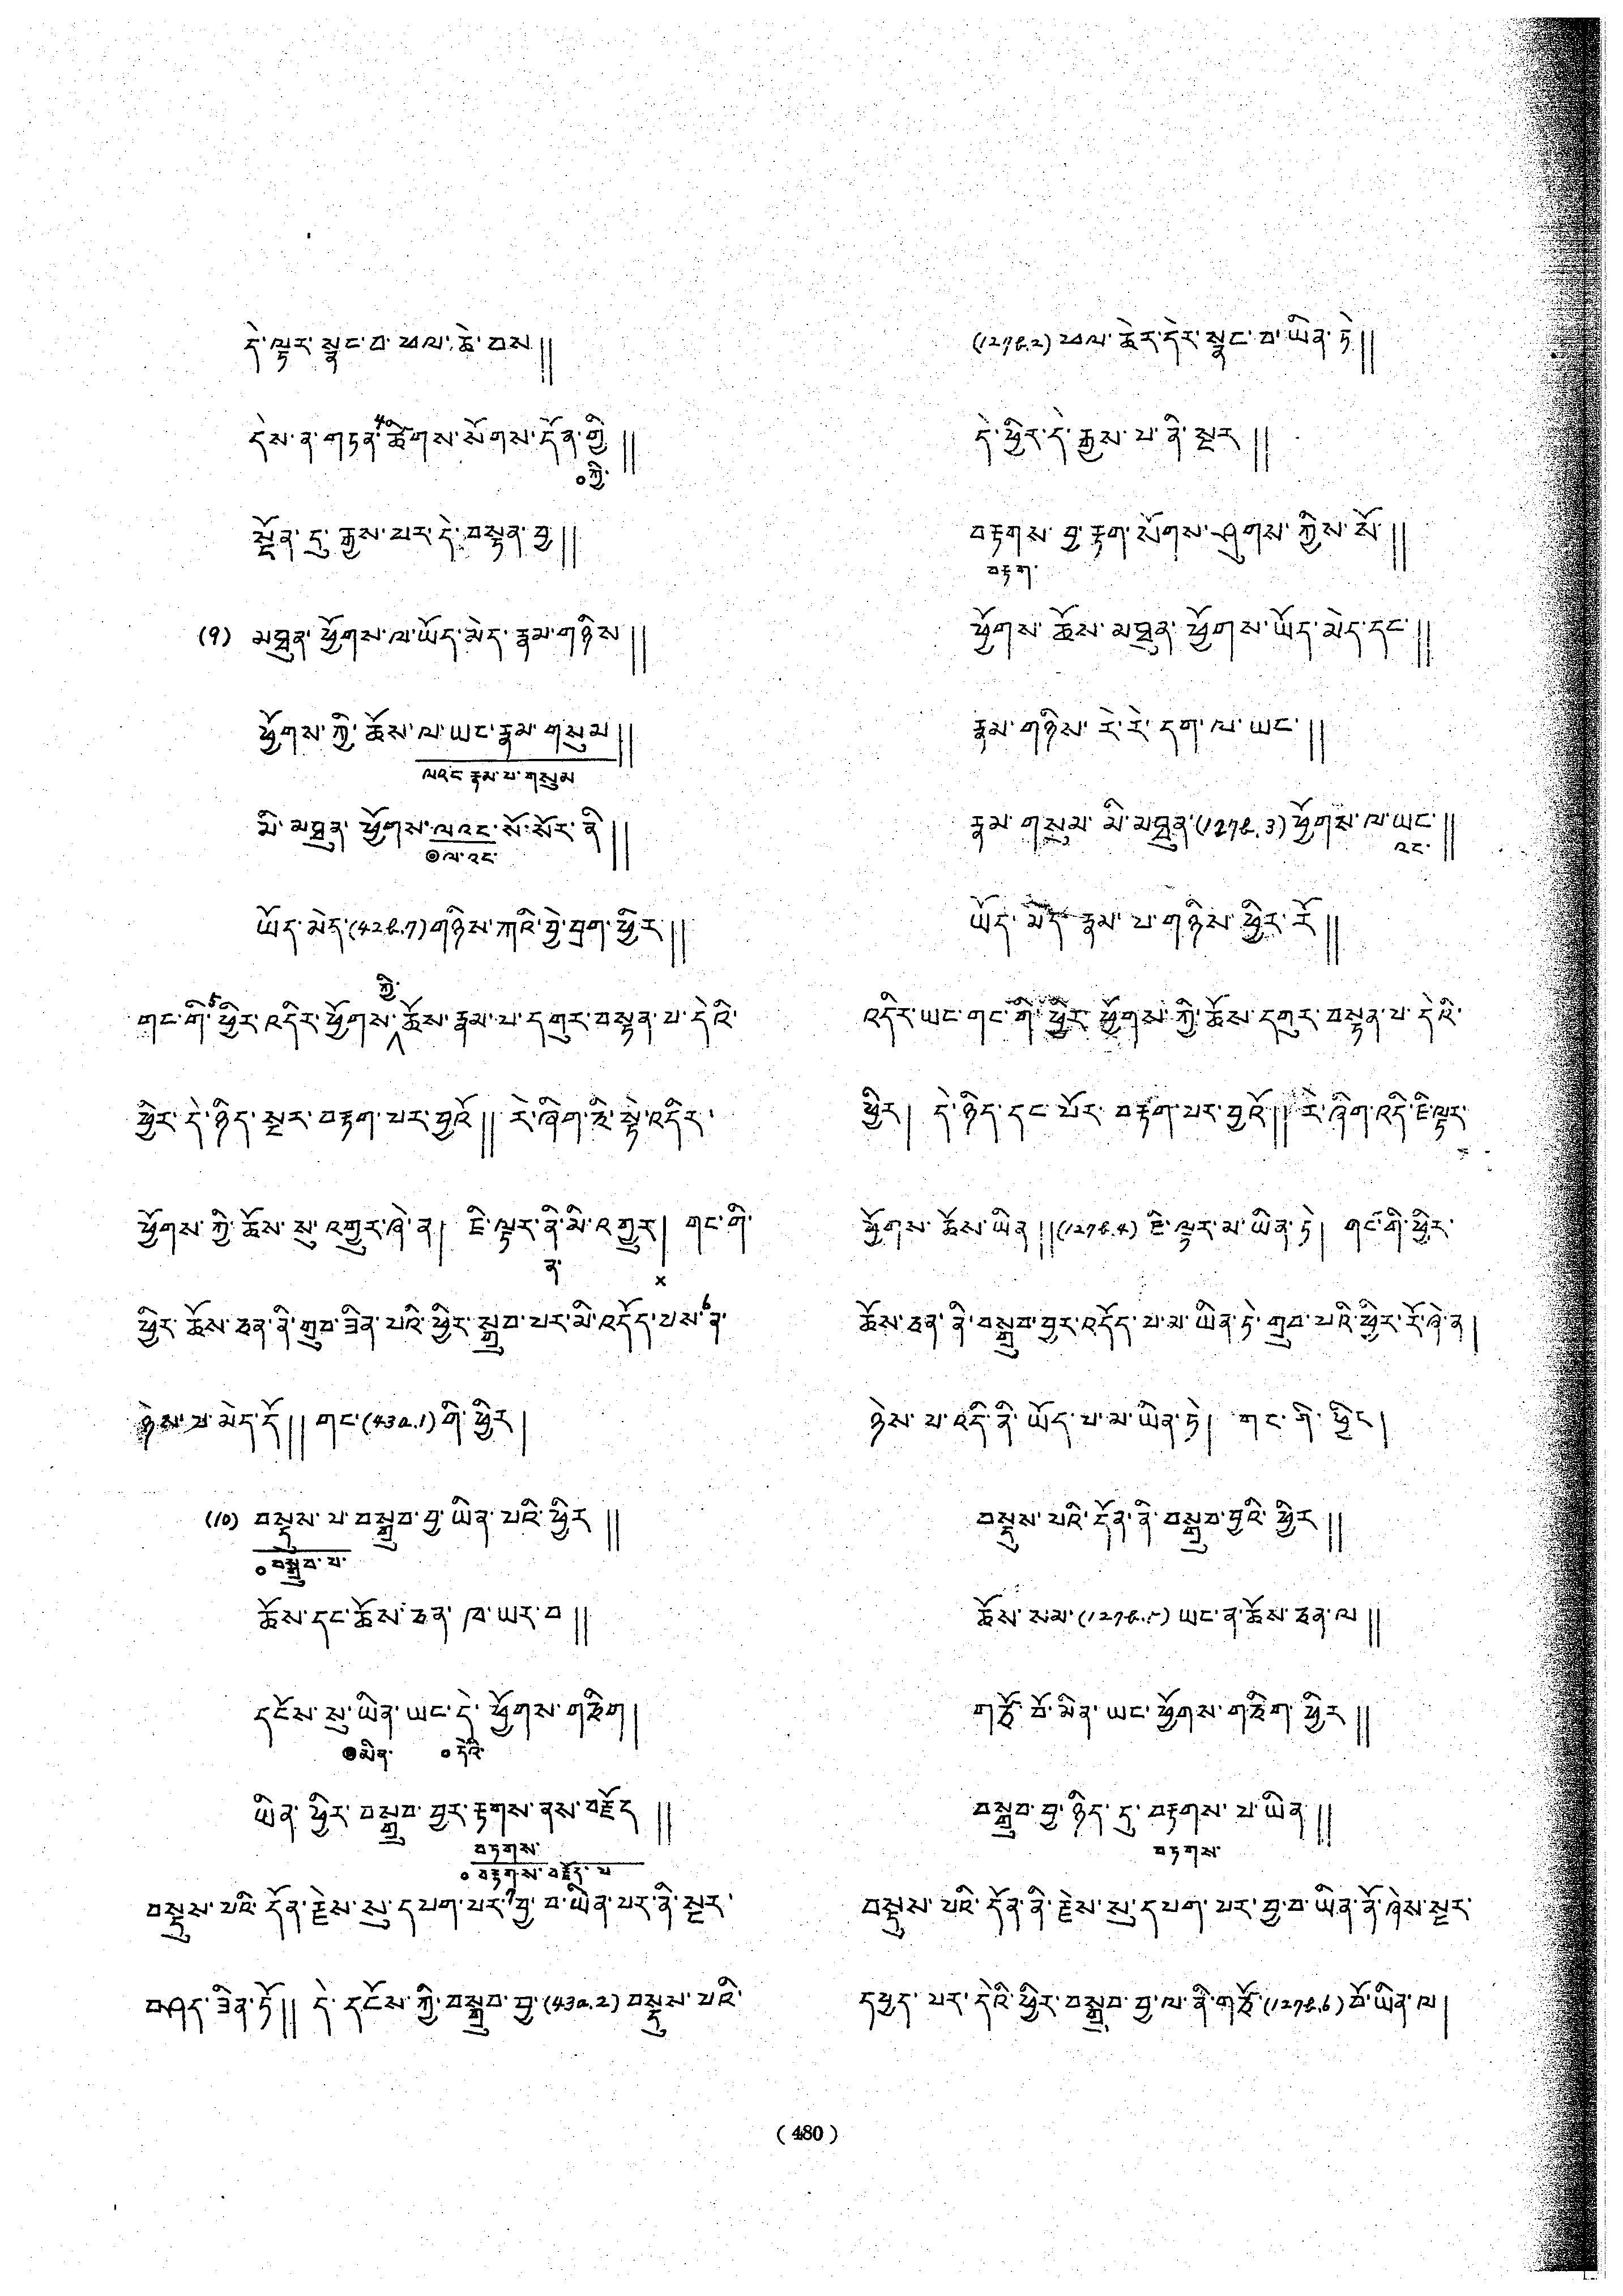 དེ་ལྟར་སྣང་བ་ཕལ་ཆེ་བས༎
དེས་ན་གཏན་⁴ཚིགས་སོགས་དོན་གྱི༎
○ཀྱི་
སྔོན་དུ་རྒྱས་པར་དེ་བསྟན་བྱ༎
(9) མཐུན་ཕྱོགས་ལ་ཡོད་མེད་རྣམ་གཉིས༎
ཕྱོགས་ཀྱི་ཆོས་ལ་ཡང་རྣམ་གསུམ༎
ལའང་རྣམ་པ་གསུམ
མི་མཐུན་ཕྱོགས་ལའང་སོ་སོར་ནི༎
◎ལ་འང་
ཡོད་མེད་(42b.7)གཉིས་ཀའི་བྱེ་བྲག་ཕྱིར༎
ཀྱི་
གང་གི་⁵ཕྱིར་འདིར་ཕྱོགས་ཆོས་རྣམ་པ་དགུར་བསྟན་པ་དེའི་
ཕྱིར་དེ་ཉིད་སྔར་བརྟག་པར་བྱའོ༎ རེ་ཞིག་ཇི་སྟེ་འདིར་
ཕྱོགས་ཀྱི་ཆོས་སུ་འགྱུར་ཞེ་ན། ཇི་ལྟར་ནི་མི་འགྱུར། གང་གི་
ན་ ×
ཕྱིར་ཆོས་ཅན་ནི་གྲུབ་ཟིན་པའི་ཕྱིར་སྒྲུབ་པར་མི་འདོད་པས་⁶ན་
ཉེས་པ་མེད་དོ༎ གང་(43a.1)གི་ཕྱིར།
(10) བསྡུས་པ་བསྒྲུབ་བྱ་ཡིན་པའི་ཕྱིར༎
○བསྒྲུབ་པ་
ཆོས་དང་ཆོས་ཅན་ཁ་ཡར་བ༎
དངོས་སུ་ཡིན་ཡང་དེ་ཕྱོགས་གཅིག།
●མིན་ ○དེའི་
ཡིན་ཕྱིར་བསྒྲུབ་བྱར་རྟགས་ནས་བརྗོད༎
བཏགས་
○བརྟགས་བརྗོད་པ
བསྡུས་པའི་དོན་རྗེས་སུ་དཔག་པར་⁷བྱ་བ་ཡིན་པར་ནི་སྔར་
བཤད་ཟིན་ཏོ༎ དེ་དངོས་ཀྱི་བསྒྲུབ་བྱ་(43a.2)བསྡུས་པའི་
(127b.2) ཕལ་ཆེར་དེར་སྣང་བ་ཡིན་ཏེ༎
དེ་ཕྱིར་དེ་རྒྱས་པ་ནི་སྔར༎
བརྟགས་བྱ་རྟག་སོགས་ཤུགས་ཀྱིས་སོ༎
བརྟག་
ཕྱོགས་ཆོས་མཐུན་ཕྱོགས་ཡོད་མེད་དང་༎
རྣམ་གཉིས་རེ་རེ་དག་ལ་ཡང་༎
རྣམ་གསུམ་མི་མཐུན་(127b.3)ཕྱོགས་ལ་ཡང་༎
འང་
ཡོད་མེད་རྣམ་པ་གཉིས་ཕྱིར་རོ༎
འདིར་ཡང་གང་གི་ཕྱིར་ཕྱོགས་ཀྱི་ཆོས་དགུར་བསྟན་པ་དེའི་
ཕྱིར། དེ་ཉིད་དང་པོར་བརྟག་པར་བྱའོ༎ རེ་ཞིག་འདི་ཇི་ལྟར་
ཕྱོགས་ཆོས་ཡིན༎(127b.4) ཇི་ལྟར་མ་ཡིན་ཏེ། གང་གི་ཕྱིར་
ཆོས་ཅན་ནི་བསྒྲུབ་བྱར་འདོད་པ་མ་ཡིན་ཏེ་གྲུབ་པའི་ཕྱིར་རོ་ཞེ་ན།
ཉེས་པ་འདི་ནི་ཡོད་པ་མ་ཡིན་ཏེ། གང་གི་ཕྱིར།
བསྡུས་པའི་དོན་ནི་བསྒྲུབ་བྱའི་ཕྱིར༎
ཆོས་སམ་(127b.5)ཡང་ན་ཆོས་ཅན་ལ༎
གཙོ་བོ་མིན་ཡང་ཕྱོགས་གཅིག་ཕྱིར༎
བསྒྲུབ་བྱ་ཉིད་དུ་བརྟགས་པ་ཡིན༎
བཏགས་
བསྡུས་པའི་དོན་ནི་རྗེས་སུ་དཔག་པར་བྱ་བ་ཡིན་ནོ་ཞེས་སྔར་
དཔྱད་པར་དེའི་ཕྱིར་བསྒྲུབ་བྱ་ལ་ནི་གཙོ་(127b.6)བོ་ཡིན་ལ།
(480)